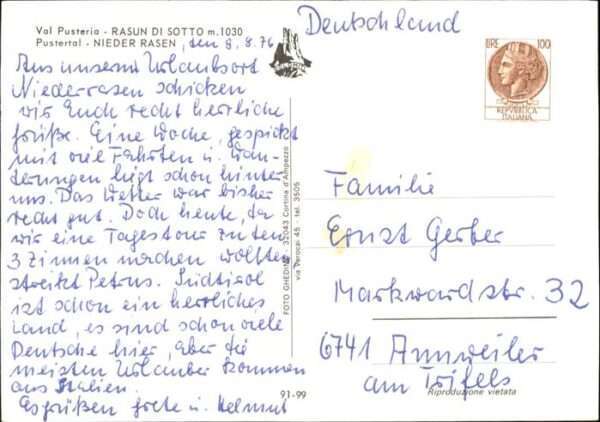 Val Pusteria - RASUN DI SOTTO m.1030
Pustertal - NIEDER RASEN, den 8.8.76
Aus unserm Urlaubsort
Niederrasen schicken
wir Euch recht herrliche
Grüße. Eine Woche, gespickt
mit viel Fahrten u. Wan-
derungen liegt schon hinter
uns. Das Wetter war bisher
recht gut. Doch heute, da
wir eine Tagestour zu den
3 Zinnen machen wollten
streikt Petrus. Südtirol
ist schon ein herrliches
Land, es sind schon viele
Deutsche hier, aber die
meisten Urlauber kommen
aus Italien.
Es grüßen Grete u. Helmut
FOTO GHEDINA - 32043 Cortina d'Ampezzo
via Verocai 45 - tel. 3505
91-99
Deutschland
LIRE 100
REPVBBLICA
ITALIANA
Familie
Ernst Gerber
Markwardstr. 32
6741 Annweiler
am Trifels
Riproduzione vietata